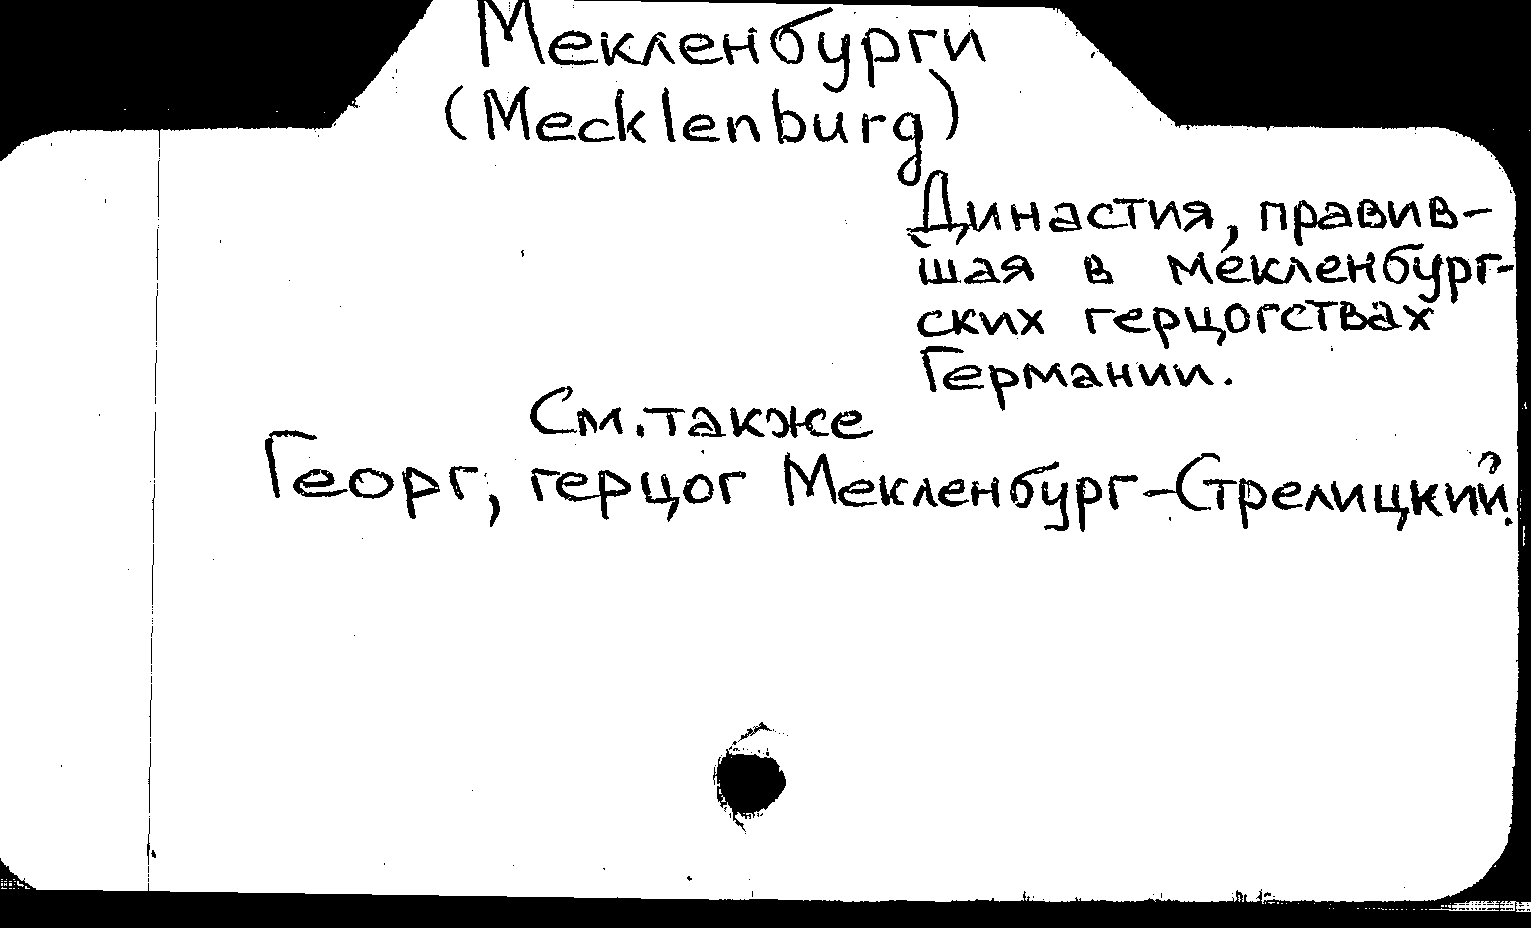 Мекленбурги
(Mecklenburg)
Династия, правив-
шая в мекленбург-
ских герцогствах
Германии.
См. также
Георг, герцог Мекленбург-Стрелицкий.